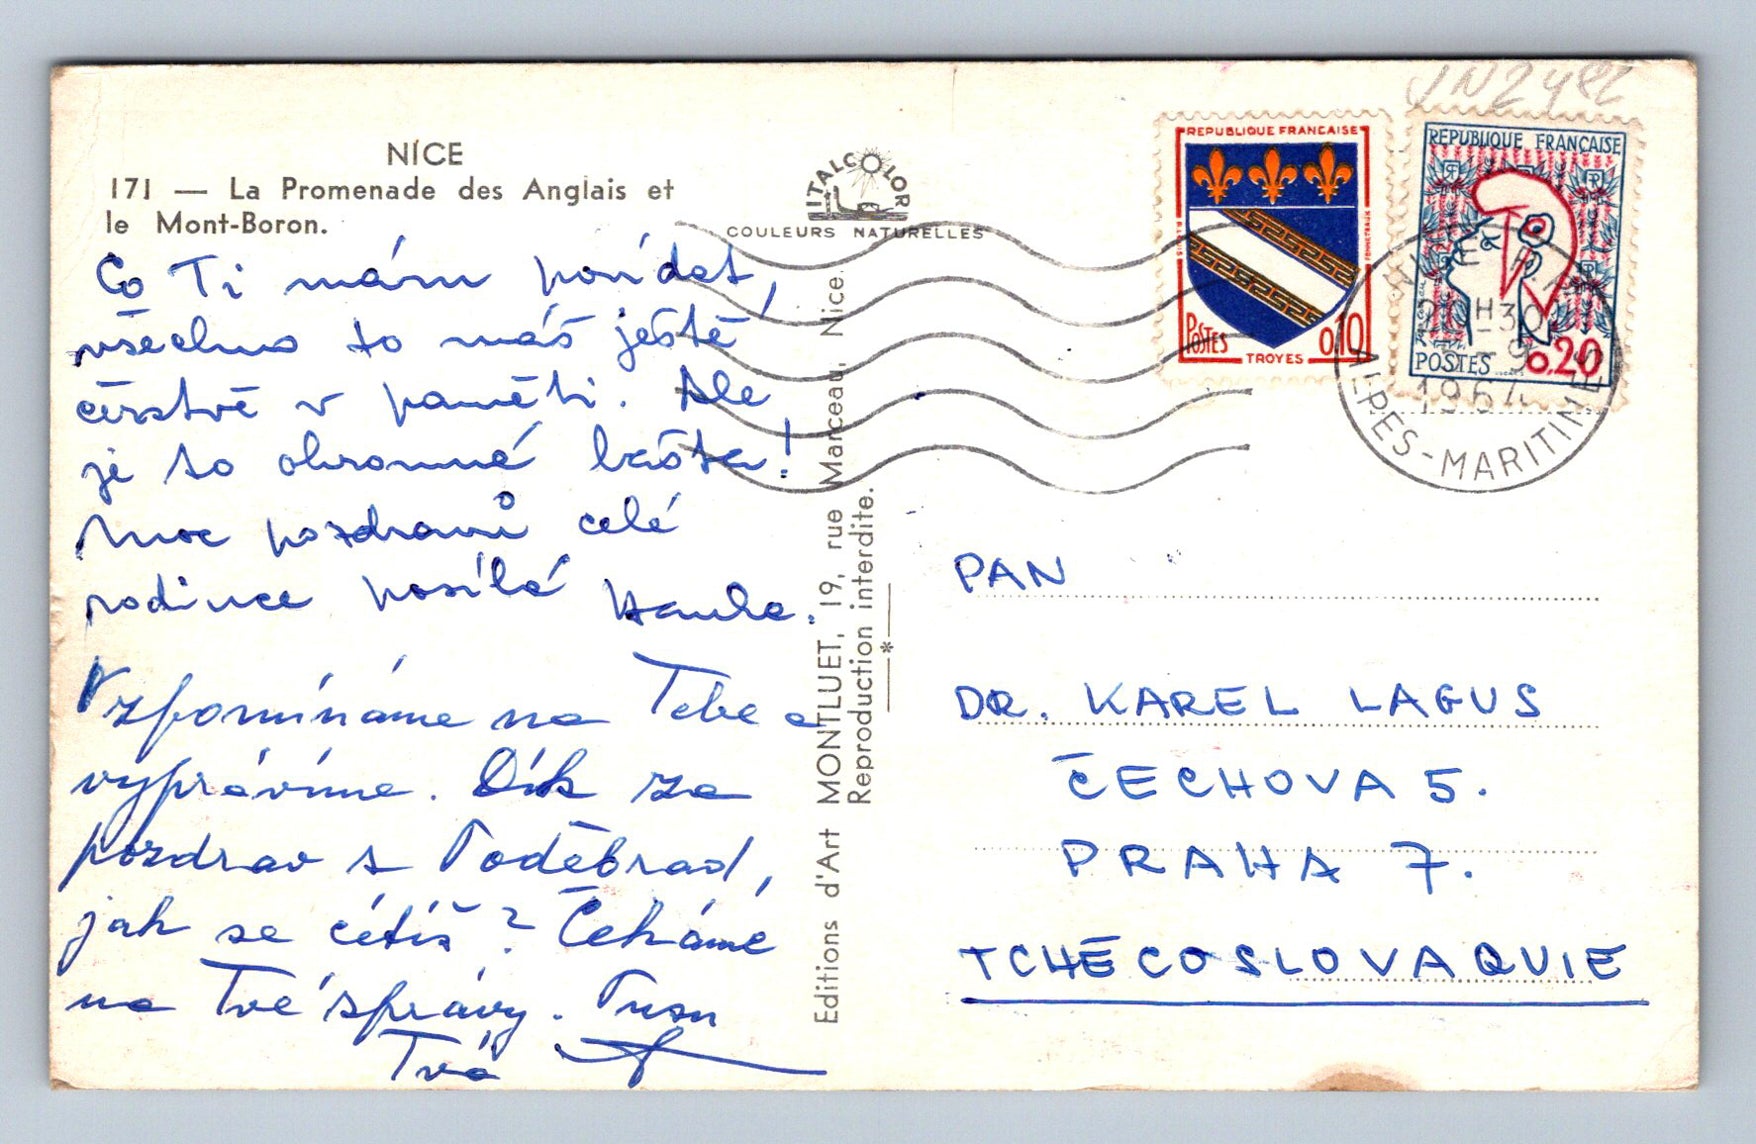 NICE
171 — La Promenade des Anglais et
le Mont-Boron.
ITALCOLOR
COULEURS NATURELLES
Co Ti mám povídat,
všechno to máš ještě
čerstvě v paměti. Ale
je to ohromné bašta!
Moc pozdravů celé
rodince posílá Hanka.
Vzpomínáme na Tebe a
vyprávíme. Dík za
pozdrav z Poděbrad,
jak se cítíš? Čekáme
na Tvé zprávy. Pusu
Tvá
Editions d'Art MONTLUET, 19, rue Marceau, Nice.
Reproduction interdite.
*
REPUBLIQUE FRANCAISE
POSTES 0,10
TROYES
REPUBLIQUE FRANÇAISE
POSTES 0.20
20H30
9
1964
ALPES-MARITIMES
PAN
DR. KAREL LAGUS
ČECHOVA 5.
PRAHA 7.
TCHÉCOSLOVAQUIE